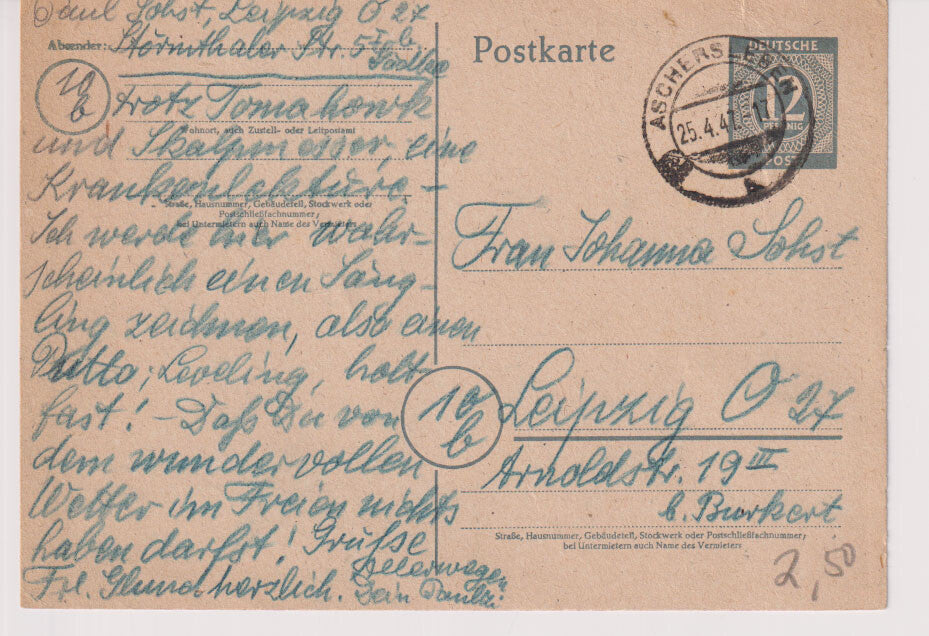 Paul Sohst, Leipzig O 27
Absender: Störmthaler Str. 5
10
b
trotz Tomahowk
Wohnort, auch Zustell- oder Leitpostamt
und Skalpmesser, eine
Krankenlektüre -
Straße, Hausnummer, Gebäudeteil, Stockwerk oder
Postschließfachnummer;
bei Untermietern auch Name des Vermieters
Ich werde hier wahr-
scheinlich einen Säug-
ling zeichnen, also einen
Putto; Leveling, halt
fast! - Daß Du von
dem wundervollen
Wetter im Freien nichts
haben darfst! Grüße
Frl. Glund herzlich. Dein Paulzi
Postkarte
ASCHERSLEBEN
25.4.47. 17
A
DEUTSCHE
12
PFENNIG
POST
Frau Johanna Sohst
10
b
Leipzig O 27
Arnoldstr. 19 III
b. Burkert
Straße, Hausnummer, Gebäudeteil, Stockwerk oder Postschließfachnummer;
bei Untermietern auch Name des Vermieters
2,50